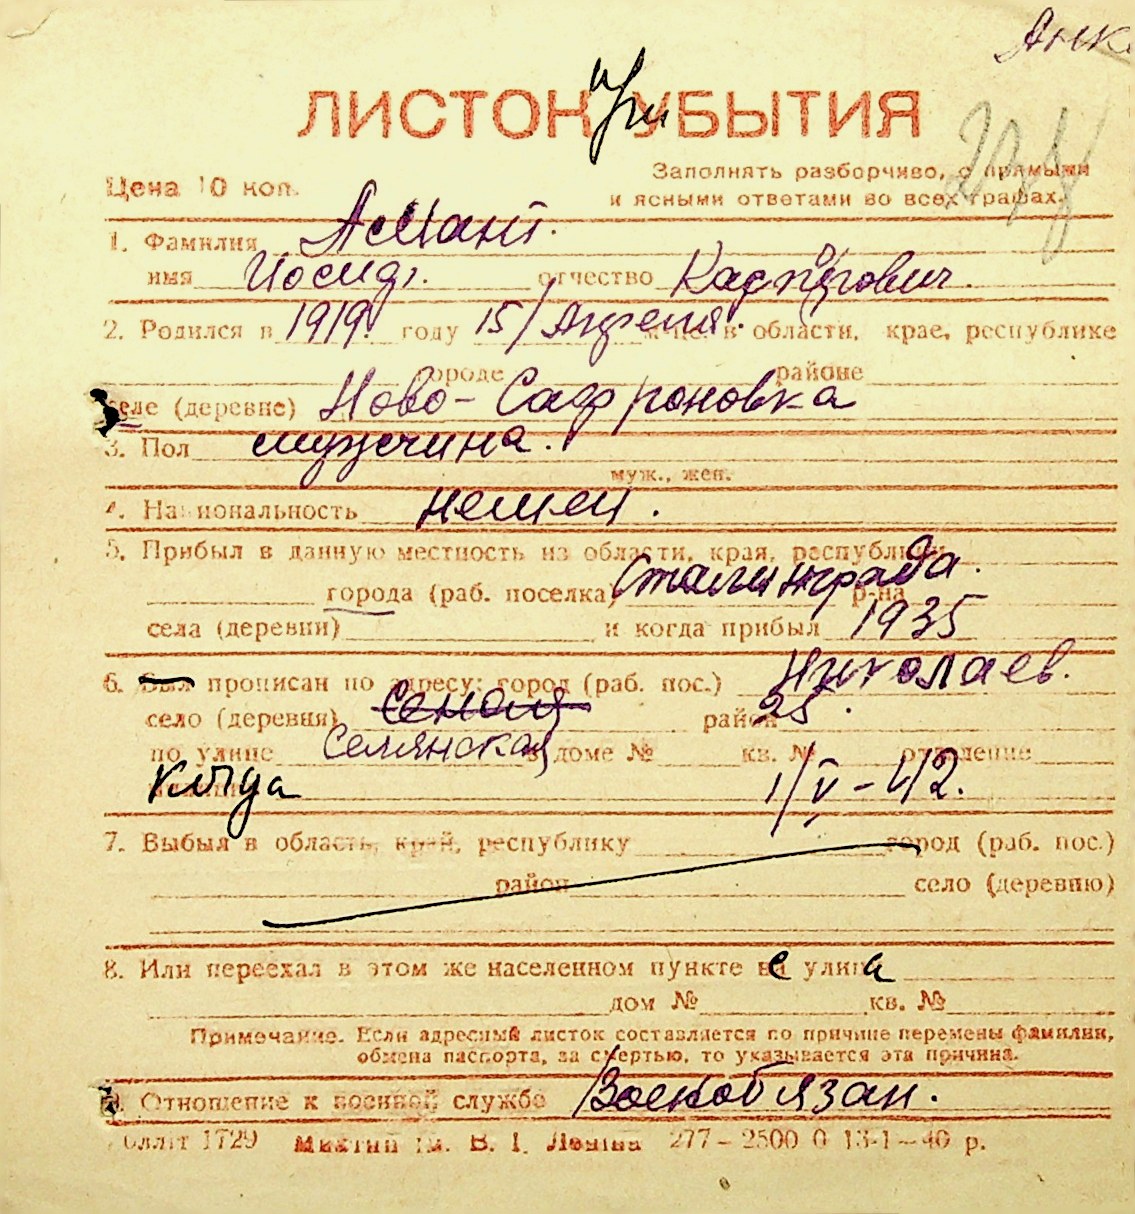 Анк
ЛИСТОК при УБЫТИЯ
Цена 10 коп. Заполнять разборчиво, с прямыми
и ясными ответами во всех графах.
1. Фамилия Асмант.
имя Иосиф. отчество Каспярович.
2. Родился в 1919 году 15/Апреля. в области, крае, республике
городе районе
селе (деревне) Ново-Сафроновка
3. Пол мужчина.
муж., жен.
4. Национальность немец.
5. Прибыл в данную местность из области, края, республики
города (раб. поселка) Сталинграда. р-на
села (деревни) и когда прибыл 1935
6. Был прописан по адресу: город (раб. пос.) Николаев.
село (деревня) Сеная район 25.
по улице Селянская в доме № кв. № отделение
когда 1/V-42.
7. Выбыл в область, край, республику город (раб. пос.)
район село (деревню)
8. Или переехал в этом же населенном пункте с улица
дом № кв. №
Примечание. Если адресный листок составляется по причине перемены фамилии,
обмена паспорта, за смертью, то указывается эта причина.
9. Отношение к военной службе Военобязан.
Обллiт 1729 Миктип iм. В. I. Ленiна 277-2500 0 13-1-40 р.